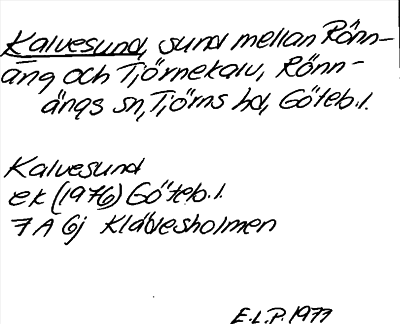 Kalvesund, sund mellan Rönn-
äng och Tjörnekalv, Rönn-
ängs sn, Tjörns hd, Göteb.l.
Kalvesund
ek (1976) Göteb.l.
7 A 6j Klåvesholmen
E.L.P. 1977